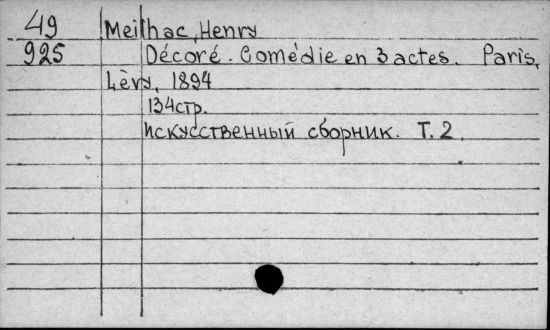 49 Meilhac, Henry
925 Décoré. Comédie en 3 actes. Paris,
Lèvy, 1894
134стр.
Искусственный сборник. Т. 2.